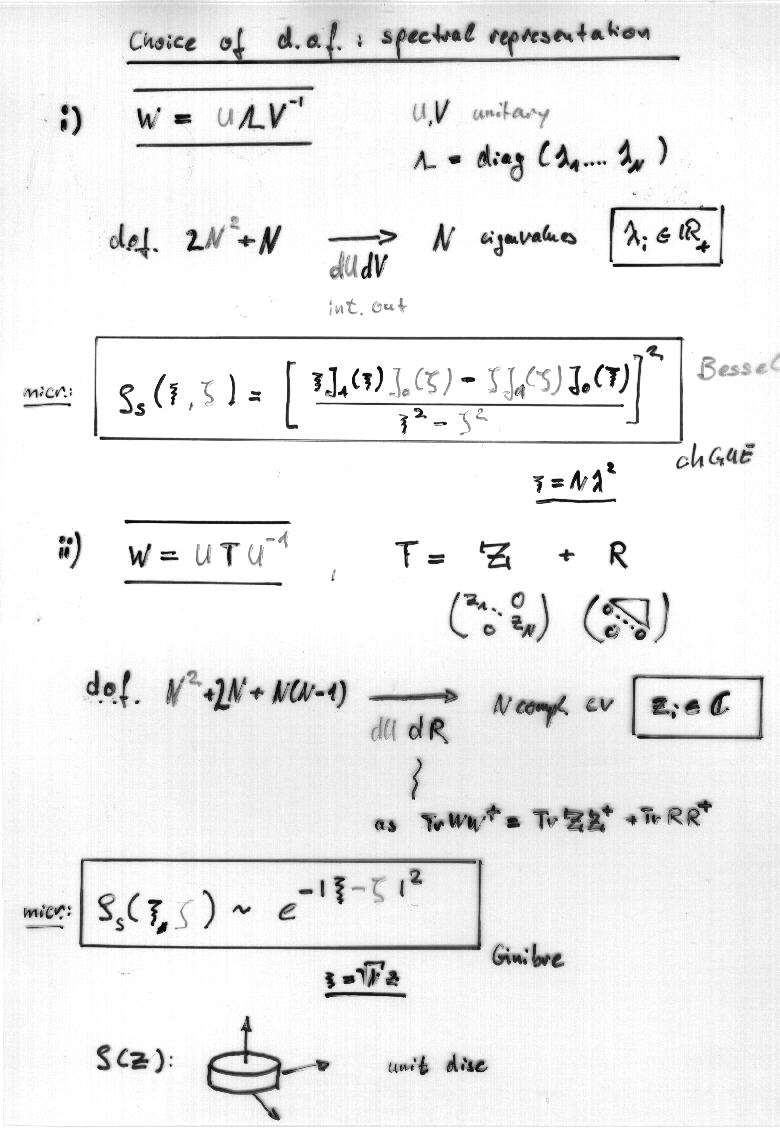 Choice of d.o.f. : spectral representation
i) W = U Λ V⁻¹ U,V unitary
Λ = diag (λ₁.... λ_N )
d.o.f. 2N² + N ⟶ N eigenvalues λᵢ ∈ ℝ₊
dU dV
int. out
micr: ρₛ(ξ, ζ) = [ (ξJ₁(ξ)J₀(ζ) - ζJ₁(ζ)J₀(ξ)) / (ξ² - ζ²) ]² Bessel
chGUE
ξ = Nλ²
ii) W = U T U⁻¹ , T = Z + R
(z₁ ... 0 0 z_N) (0 ... 0 0)
d.o.f. N² + 2N + N(N-1) ⟶ N compl. ev zᵢ ∈ ℂ
dU dR
as Tr WW⁺ = Tr ZZ⁺ + Tr RR⁺
micr: ρₛ(ξ, ζ) ~ e^{-|ξ-ζ|²}
Ginibre
ξ = √N z
ρ(z): unit disc